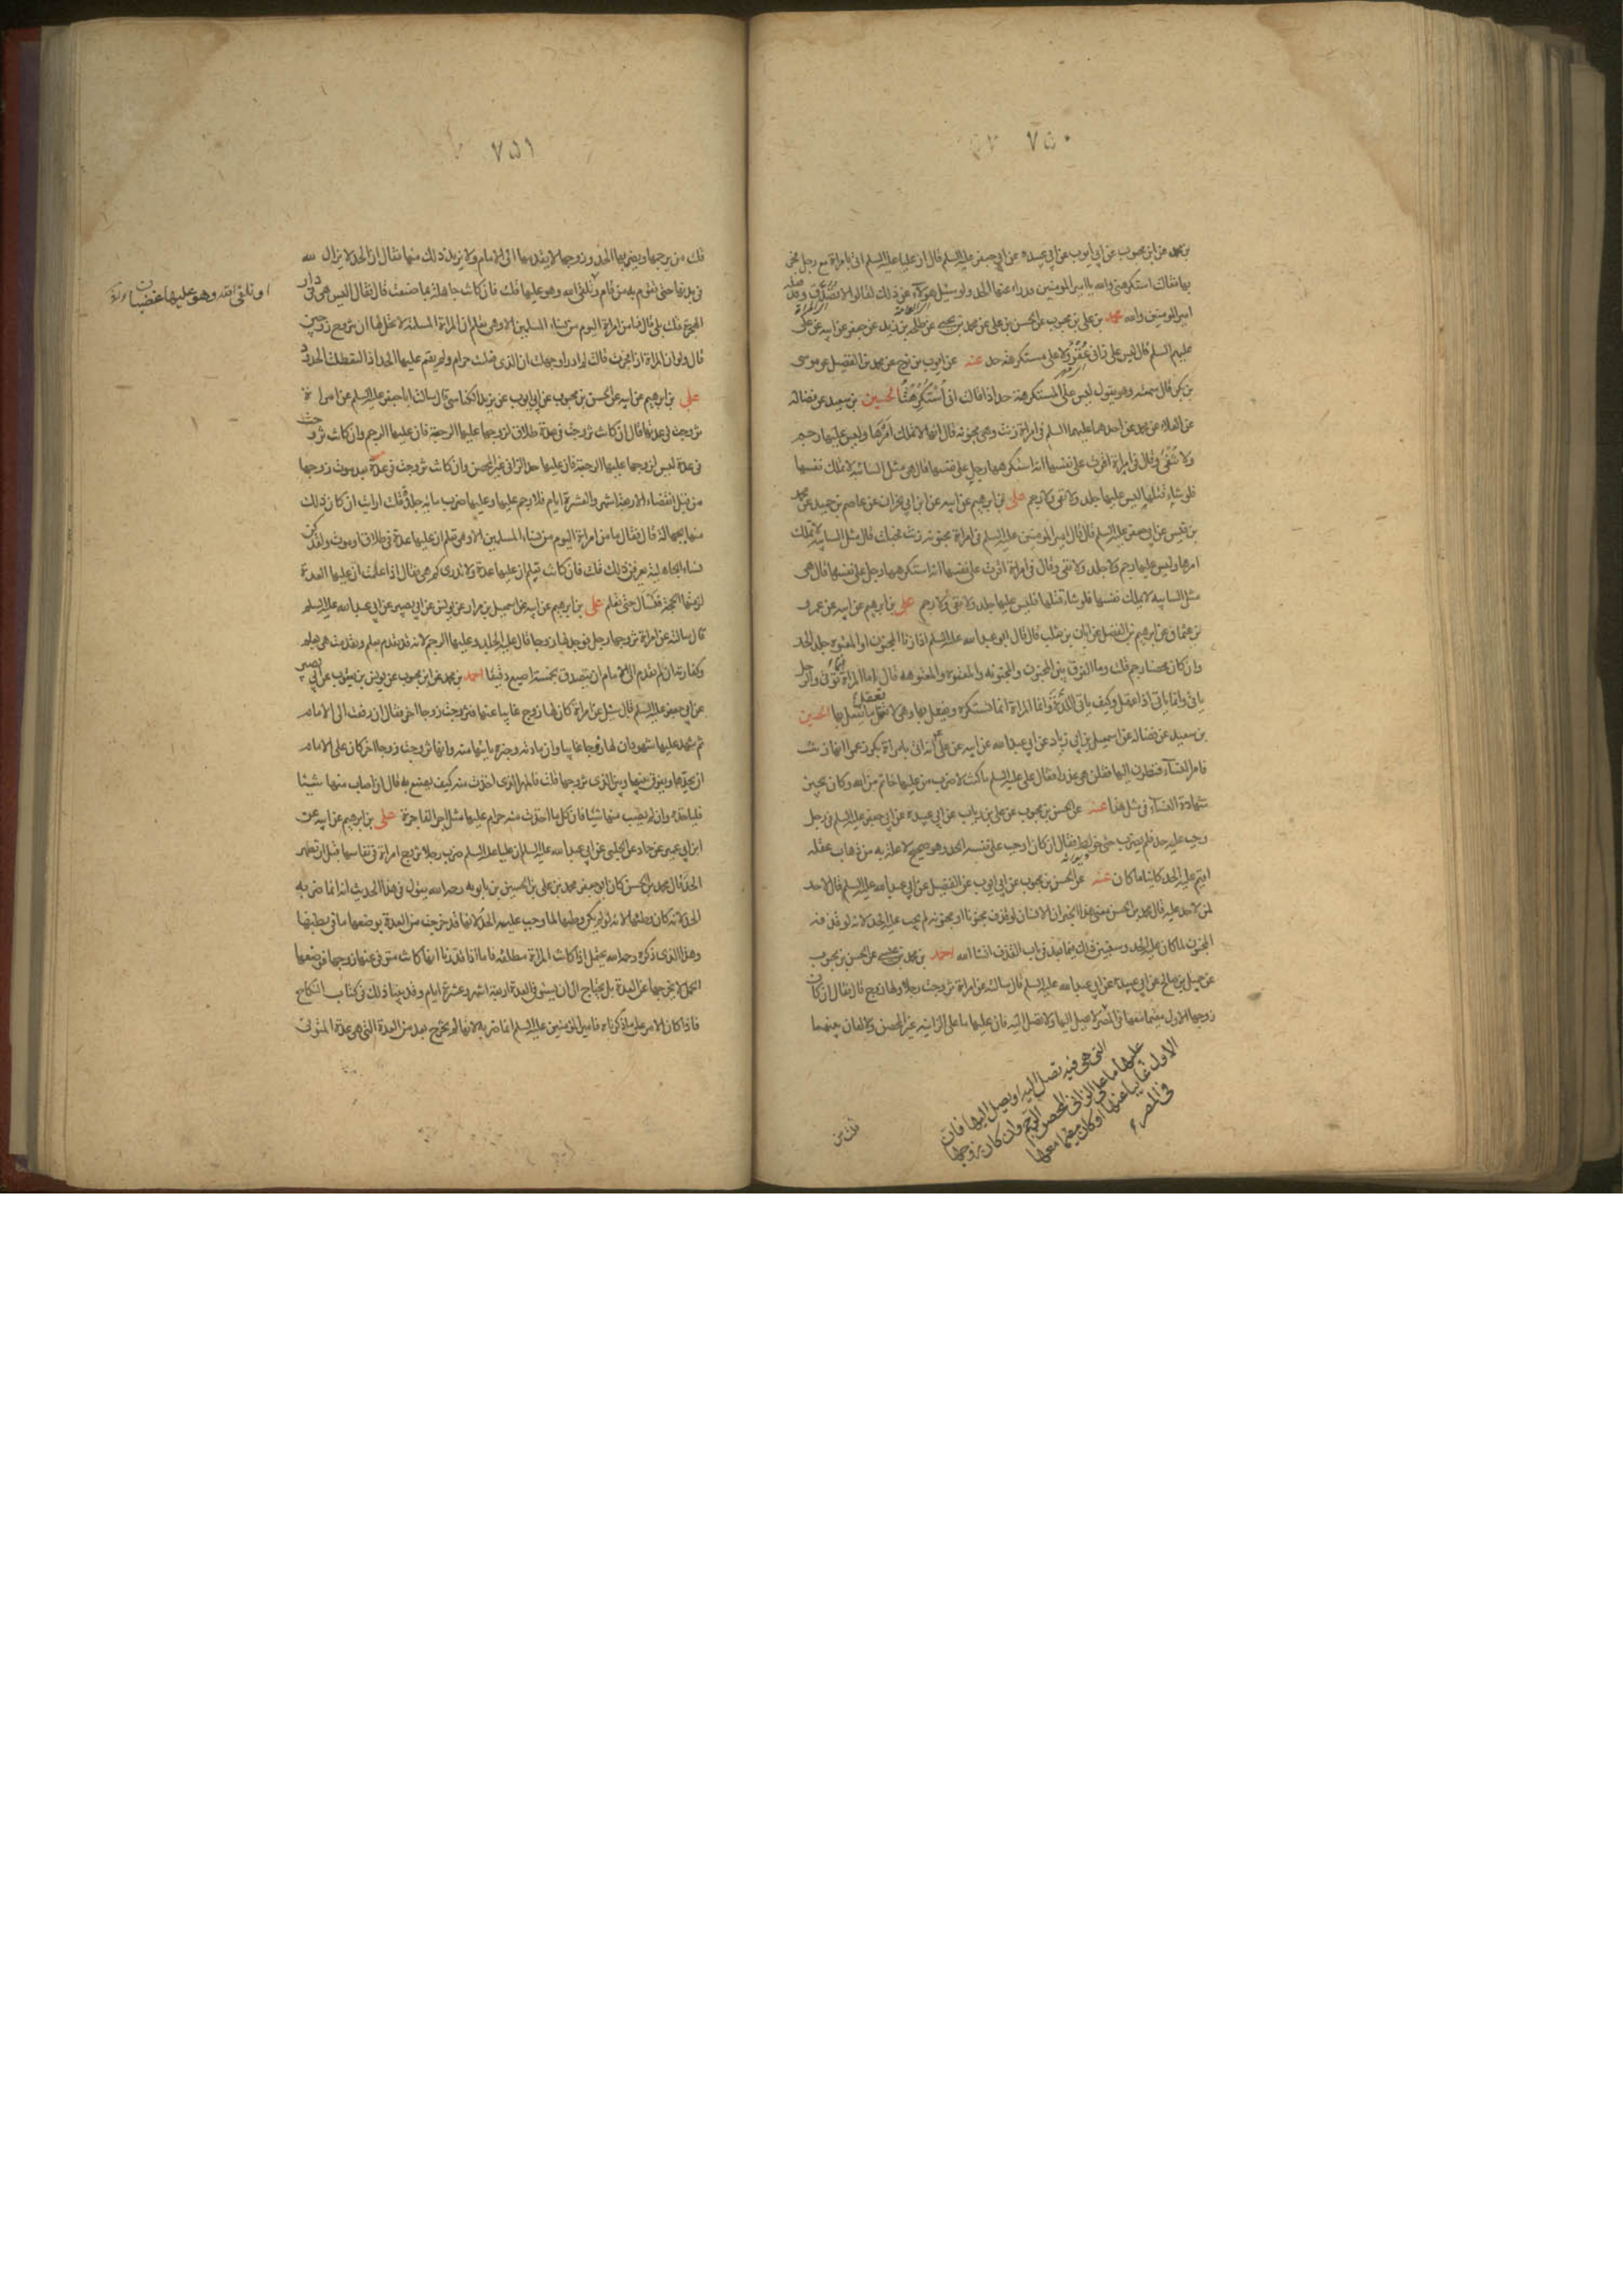 ٧٥٠
بن محمد عن ابن محبوب عن ابى ايوب عن ابى عبيده عن ابى جعفر عليه السلم قال ان عليا عليه السلم اتى بامراة مع رجل فجر
بها فقالت استكرهنى والله يا امير المومنين فدرء عنها الحد ولو سئل هؤلآء عن ذلك لقالوا لا تصدق وقد فعله
امير المومنين والله محمد بن على بن محبوب عن الحسن بن على عن محمد بن يحيى عن طلحه بن زيد عن جعفر عن ابيه عن على
عليهم السلم قال ليس على زانى عقر ولا على مستكرهة حد عنه عن ايوب بن نوح عن محمد بن الفضيل عن موسى
بن بكر قال سمعته وهو يقول ليس على المستكرهة حد اذا قالت انى استكرهت الحسين بن سعيد عن فضاله
عن العلاء عن محمد عن احدهما عليهما السلم فى امراة زنت وهى مجنونه قال انها لا تملك امرها وليس عليها رجم
ولا نفى وقال فى امراة اقرت على نفسها انه استكرهها رجل على نفسها قال هى مثل السائبه لا تملك نفسها
فلو شاء قتلها ليس عليها جلد ولا نفى ولا رجم على بن ابرهيم عن ابيه عن ابن ابى نجران عن عاصم بن حميد عن محمد
بن قيس عن ابى جعفر عليه السلم قال قال امير المومنين عليه السلم فى امراة مجنونه زنت فحبلت قال مثل السائبه لا تملك
امرها وليس عليها رجم ولا جلد ولا نفى وقال فى امراة اقرت على نفسها انه استكرهها رجل على نفسها قال هى
مثل السايبه لا تملك نفسها فلو شاء قتلها فليس عليها جلد ولا نفى ولا رجم على بن ابرهيم عن ابيه عن عمرو
بن عثمان عن ابرهيم بن الفضل عن ابان بن تغلب قال قال ابو عبد الله عليه السلم اذا زنا المجنون او المعتوه جلد الحد
وان كان محصنا رجم قلت وما الفرق بين المجنون والمجنونه والمعتوه والمعتوهه قال انما المراة تؤتى والرجل
ياتى وانما ياتى اذا عقل وكيف ياتى اللذة وانما المراة انما تستكره ويفعل بها وهى لا تعقل ما يفعل بها الحسين
بن سعيد عن فضاله عن اسمعيل بن ابى زياد عن ابى عبد الله عن ابيه عن على انه اتى بامراة بكر زعموا انها زنت
فامر النسآء فنظرن اليها فقلن هى عذراء فقال على عليه السلم ما كنت لاضرب من عليها خاتم من الله وكان يجيز
شهادة النسآء فى مثل هذا عنه عن الحسن بن محبوب عن على بن رياب عن ابى عبيده عن ابى جعفر عليه السلم فى رجل
وجب عليه حد فلم يضرب حتى خولط فقال ان كان اوجب على نفسه الحد وهو صحيح لا علة به من ذهاب عقله
اقيم عليه الحد كائنا ما كان عنه عن الحسن بن محبوب عن ابى ايوب عن الفضيل عن ابى عبد الله عليه السلم قال لا حد
لمن لا حد عليه قال محمد بن الحسن معنى هذا الخبر ان الانسان لو قذف مجنونا او مجنونه لم يجب عليه الحد لانه لو قذفه
المجنون لما كان عليه الحد وسنبين ذلك فيما بعد فى باب القذف انشا الله احمد بن محمد بن عيسى عن الحسن بن محبوب
عن جميل بن صالح عن ابى عبيده عن ابى عبد الله عليه السلم قال سالته عن امراة تزوجت رجلا ولها زوج قال فقال ان كان
زوجها الاول مقيما معها فى المصر لا يصل اليها ولا تصل اليه فان عليها ما على الزانيه غير المحصن ولا لعان بينهما
التى هى فيه تصل اليه او يصل اليها فان
عليها ما على الزانى المحصن الرجم وان كان زوجها
الاول غايبا عنها او كان مقيما معها
فى المصر
قلت من
٧٥١
قلت من يرجمها ويضربها الحد وزوجها لا يقدمها الى الامام ولا يريد ذلك منها فقال ان الحد لا يزال لله
فى بدنها حتى يقوم به من قام وتلقى الله وهو عليها قلت فان كانت جاهلة بما صنعت قال فقال اليس هى فى دار
الهجرة قلت بلى قال فما من امراة اليوم من نساء المسلمين الا وهى تعلم ان المراة المسلمة لا يحل لها ان تزوج زوجين
قال ولو ان المراة اذا فجرت قالت لم ادر او جهلت ان الذى فعلت حرام ولم يقم عليها الحد اذا لتعطلت الحدود
على بن ابرهيم عن ابيه عن الحسن بن محبوب عن ابى ايوب عن يزيد الكناسى قال سالت ابا جعفر عليه السلم عن امراة
تزوجت فى عدتها قال ان كانت تزوجت فى عدة طلاق لزوجها عليها الرجعة فان عليها الرجم وان كانت تزوجت
فى عدة ليس لزوجها عليها الرجعة فان عليها حد الزانى غير المحصن وان كانت تزوجت فى عدة بعد موت زوجها
من قبل انقضاء الاربعة اشهر والعشرة ايام فلا رجم عليها وعليها ضرب مائة جلدة قلت ارايت ان كان ذلك
منها بجهالة قال فقال ما من امراة اليوم من نساء المسلمين الا وهى تعلم ان عليها عدة فى طلاق او موت ولقد كن
نساء الجاهلية يعرفن ذلك قلت فان كانت تعلم ان عليها عدة ولا تدرى كم هى فقال اذا علمت ان عليها العدة
لزمتها الحجة فتسال حتى تعلم على بن ابرهيم عن ابيه عن اسمعيل بن مرار عن يونس عن ابى بصير عن ابى عبد الله عليه السلم
قال سالته عن امراة تزوجها رجل فوجد لها زوجا قال عليه الجلد وعليها الرجم لانه قد تقدم بعلم وتقدمت هى بعلم
وكفارته ان لم يقدم الى الامام ان يتصدق بخمسة اصبع دقيقا احمد بن محمد عن ابن محبوب عن يونس بن يعقوب عن ابى بصير
عن ابى جعفر عليه السلم قال سئل عن امراة كان لها زوج غايبا عنها فتزوجت زوجا اخر فقال ان رفعت الى الامام
ثم شهد عليها شهود ان لها زوجا غايبا وان مادته وخبره ياتيها منه وانها تزوجت زوجا اخر كان على الامام
ان يحدها ويفرق بينها وبين الذى تزوجها قلت فالمهر الذى اخذت منه كيف يصنع به قال ان اصاب منها شيئا
فلياخذه وان لم يصب منها شيئا فان كل ما اخذت منه حرام عليها مثل اجر الفاجرة على بن ابرهيم عن ابيه عن
ابن ابى عمير عن حماد عن الحلبى عن ابى عبد الله عليه السلم ان عليا عليه السلم ضرب رجلا تزوج امراة فى نفاسها قبل ان تطهر
الحد قال محمد بن الحسن كان ابو جعفر محمد بن على بن الحسين بن بابويه رحمه الله يقول فى هذا الحديث انه انما ضربه
الحد لانه كان وطئها لانه لو لم يكن وطئها لما وجب عليه الحد لانها قد خرجت من العدة بوضعها ما فى بطنها
وهذا الذى ذكره رحمه الله يحتمل اذا كانت المراة مطلقة فاما اذا قدرنا انها كانت متوفى عنها زوجها فوضعها
الحمل لا يخرجها عن العدة بل تحتاج الى ان يستوفى العدة اربعة اشهر وعشرة ايام وقد بينا ذلك فى كتاب النكاح
فاذا كان الامر على ما ذكرناه فامير المومنين عليه السلم انما ضربه لانها لم تخرج بعد من العدة التى هو عدة المتوفى
او تلقى الله وهو عليها غضبان